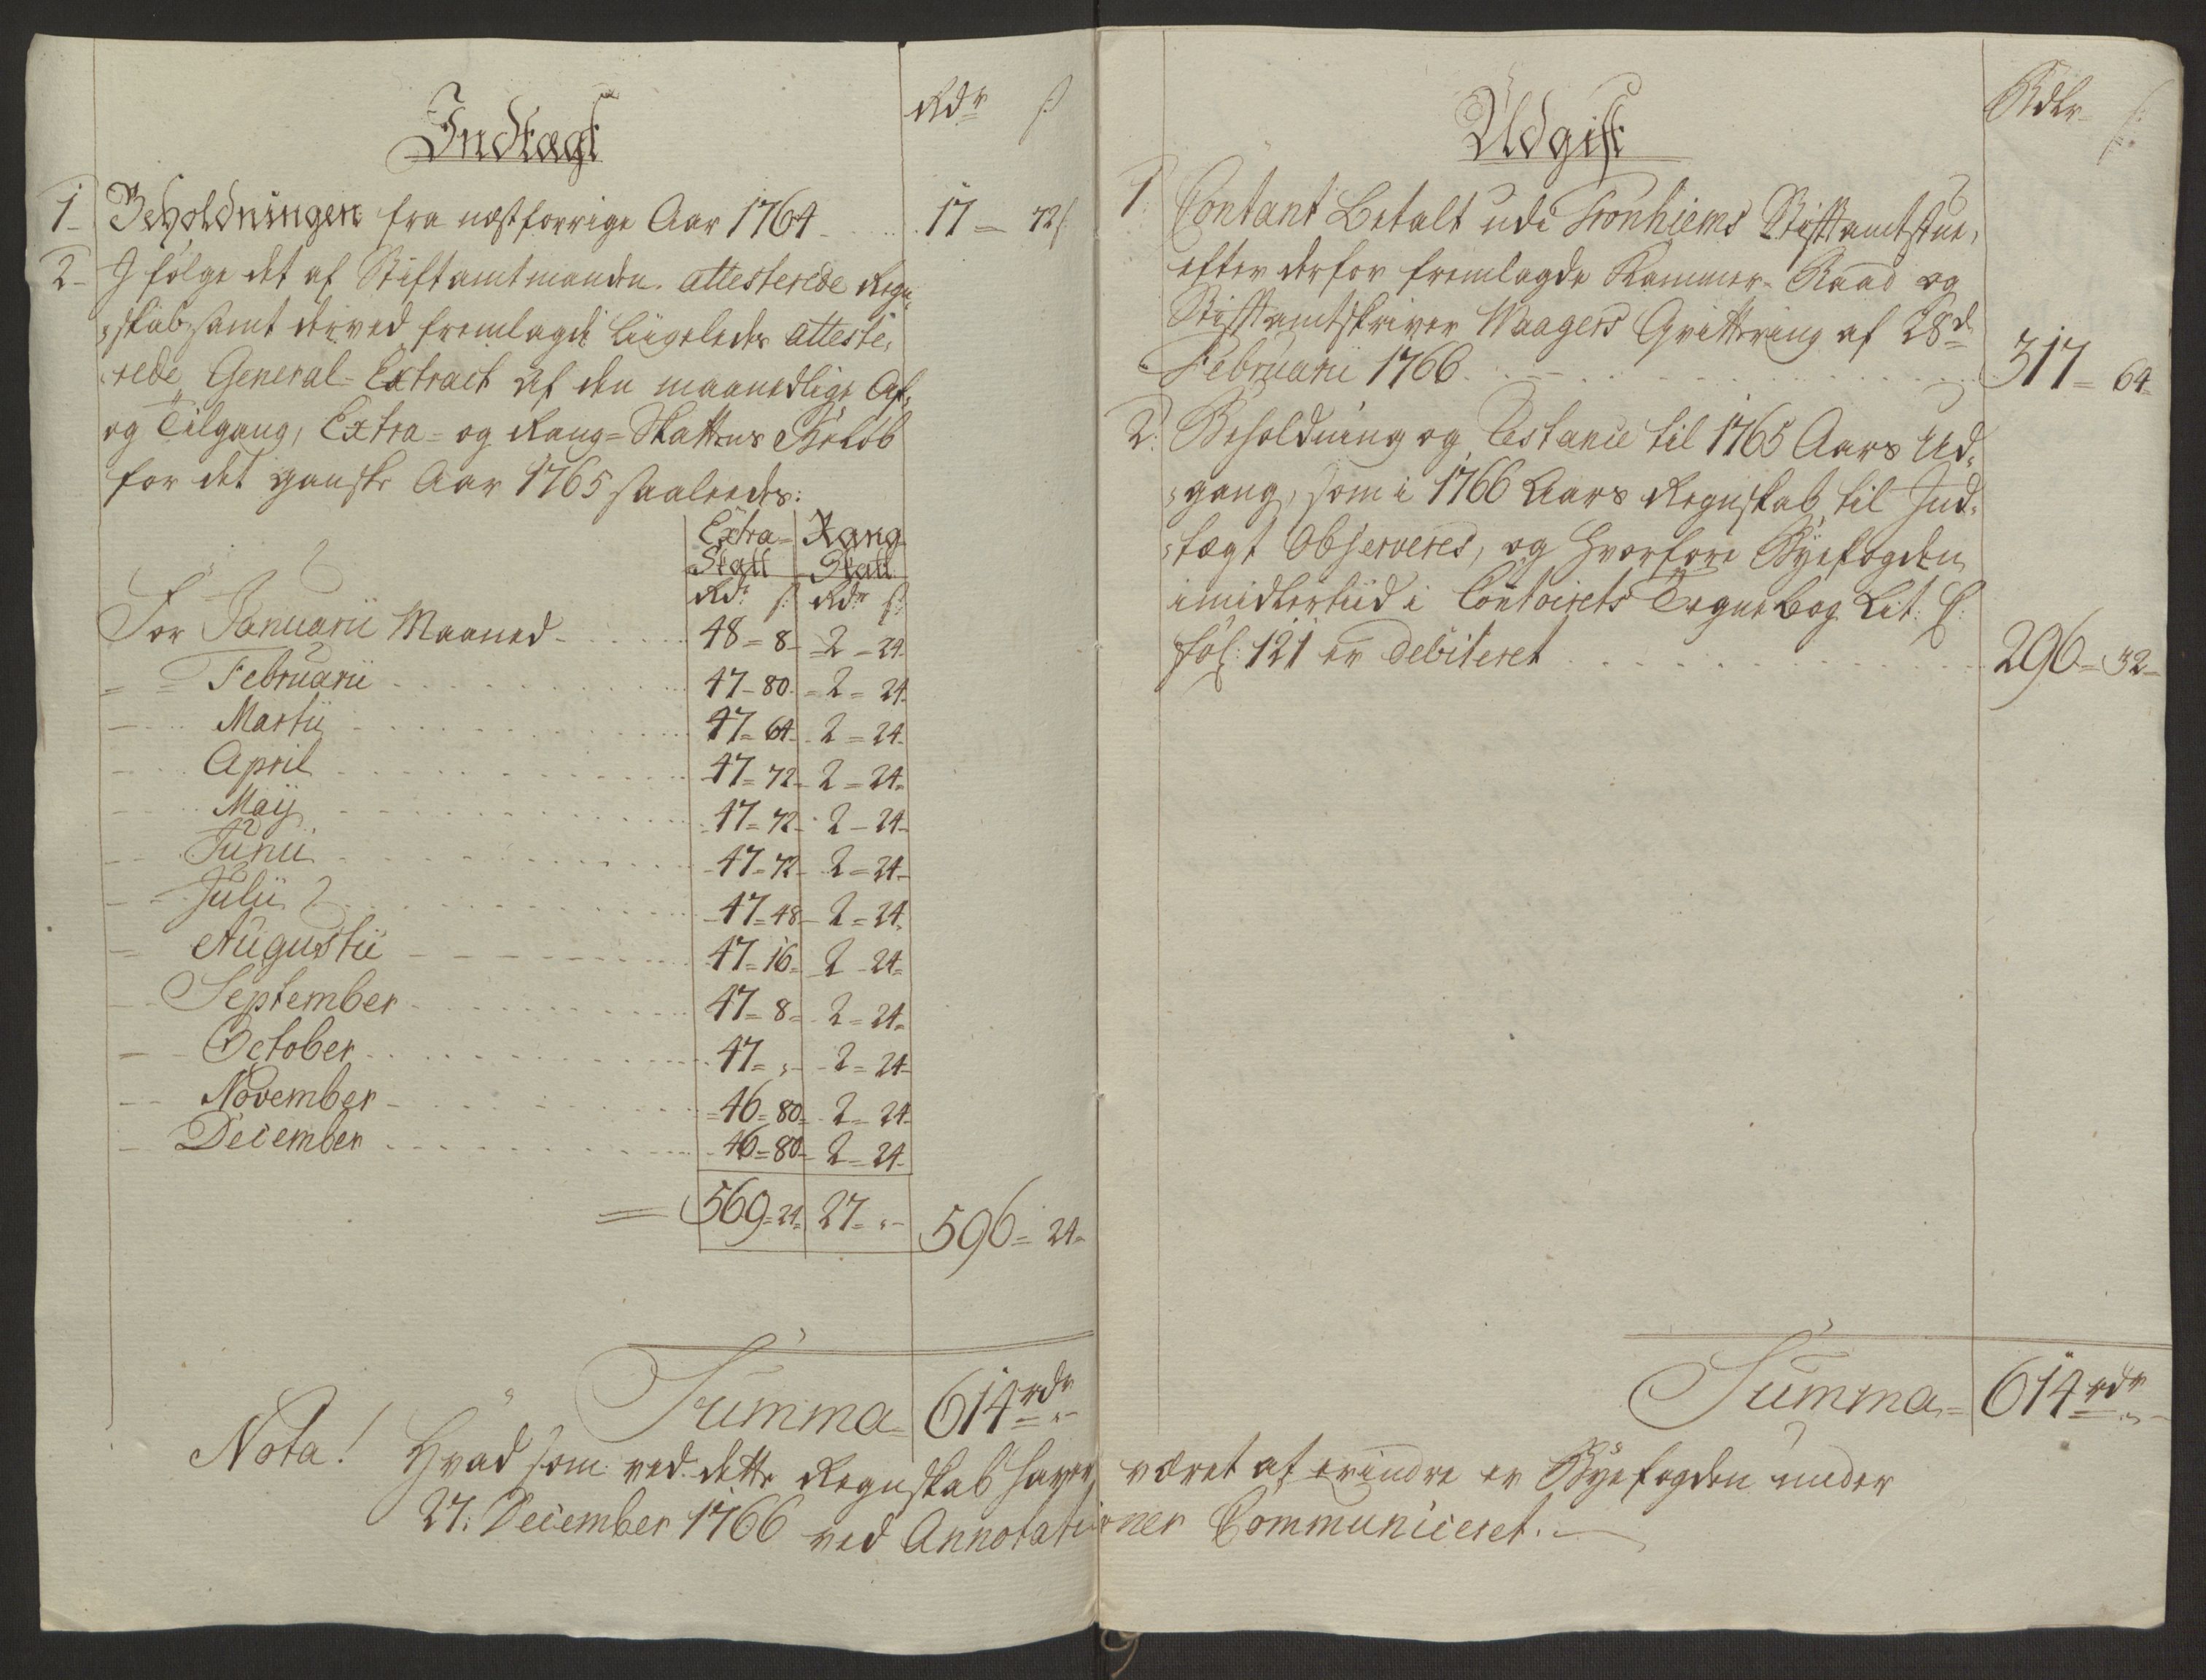 Indtægt
Rdr ß
1. Beholdningen fra næstforrige Aar 1764 17 = 72 ß
2. I følge det af Stiftamtmanden attesterede Regn-
skab samt derved fremlagde liigeledes atteste-
rede General-Extract af den maanedlige Af-
og Tilgang, Extra- og Rang-Skattens Beløb
for det ganske Aar 1765 saaledes:
Extra- Rang
Skatt Skatt
Rdr ß Rdr ß
For Januarii Maaned 48 = 8 2 = 24
Februarii 47 = 80 2 = 24
Martii 47 = 64 2 = 24
April 47 = 72 2 = 24
Maij 47 = 72 2 = 24
Junii 47 = 72 2 = 24
Julii 47 = 48 2 = 24
Augustii 47 = 16 2 = 24
September 47 = 8 2 = 24
October 47 = „ 2 = 24
November 46 = 80 2 = 24
December 46 = 80 2 = 24
569 = 24 27 = „ 596 = 24
Summa 614 rdr „
Udgift
Rdlr ß
1. Contant Betalt udi Tronhiems Stiftamtstue,
efter derfor fremlagde Kammer-Raad og
Stiftamtskriver Waagers Qvittering af 28de
Februarii 1766 317 = 64
2. Beholdning og Restance til 1765 Aars Ud-
gang, som i 1766 Aars Regnskab til Ind-
tægt Observeres, og hvorfore Byefogden
imidlertiid i Contoirets Tegnebog Lit:
fol: 121 er debiteret 296 = 32
Summa 614 rdr „
Nota! Hvad som ved dette Regnskab haver været at erindre er Byefogden under
27. December 1766 ved Annotationer Communiceret.